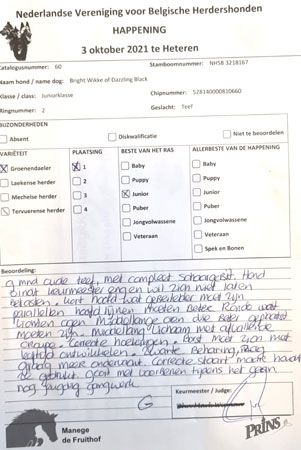 Nederlandse Vereniging voor Belgische Herdershonden
HAPPENING
3 oktober 2021 te Heteren
Catalogusnummer: 60
Stamboomnummer: NHSB 3218167
Naam hond / name dog: Bright Wikke of Dazzling Black
Klasse / class: Juniorklasse
Chipnummer: 528140000810660
Ringnummer: 2
Geslacht: Teef
BIJZONDERHEDEN
Absent
Diskwalificatie
Niet te beoordelen
VARIËTEIT
PLAATSING
BESTE VAN HET RAS
ALLERBESTE VAN DE HAPPENING
Groenendaeler
1
Baby
Baby
Laekense herder
2
Puppy
Puppy
Mechelse herder
3
Junior
Junior
Tervuerense herder
4
Puber
Puber
Jongvolwassene
Jongvolwassene
Veteraan
Veteraan
Spek en Bonen
Beoordeling:
9 mnd oude teef, met compleet schaargebit. Hond
vindt keurmeester eng en wil zich niet laten
betasten. Kort hoofd wat gebeitelder moet zijn
parallellen hoofdlijnen moeten beter. Ronde wat
lichten ogen. Middellange oren die beter geplaatst
moeten zijn. Middellang lichaam met afvallende
croupe. Correcte hoekingen. Borst moet zich met
leeftijd ontwikkelen. Zwarte beharing,
graag meer ondervacht. Correcte staart
gebruikt. Gaat met tijdens het gaan
nog gangwerk.
G
Keurmeester / Judge:
Manege
de Fruithof
PRINS